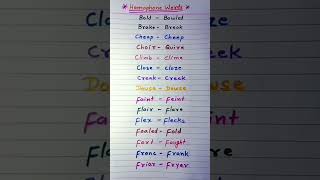 * Homophone Words *
Bold - Bowled
Brake - Break
Cheap - Cheep
Choir - Quire
Climb - Clime
Close - Cloze
Creak - Creek
Douse - Dowse
Faint - Feint
Flair - Flare
Flex - Flecks
Foaled - Fold
Fort - Fought
Franc - Frank
Friar - Fryer